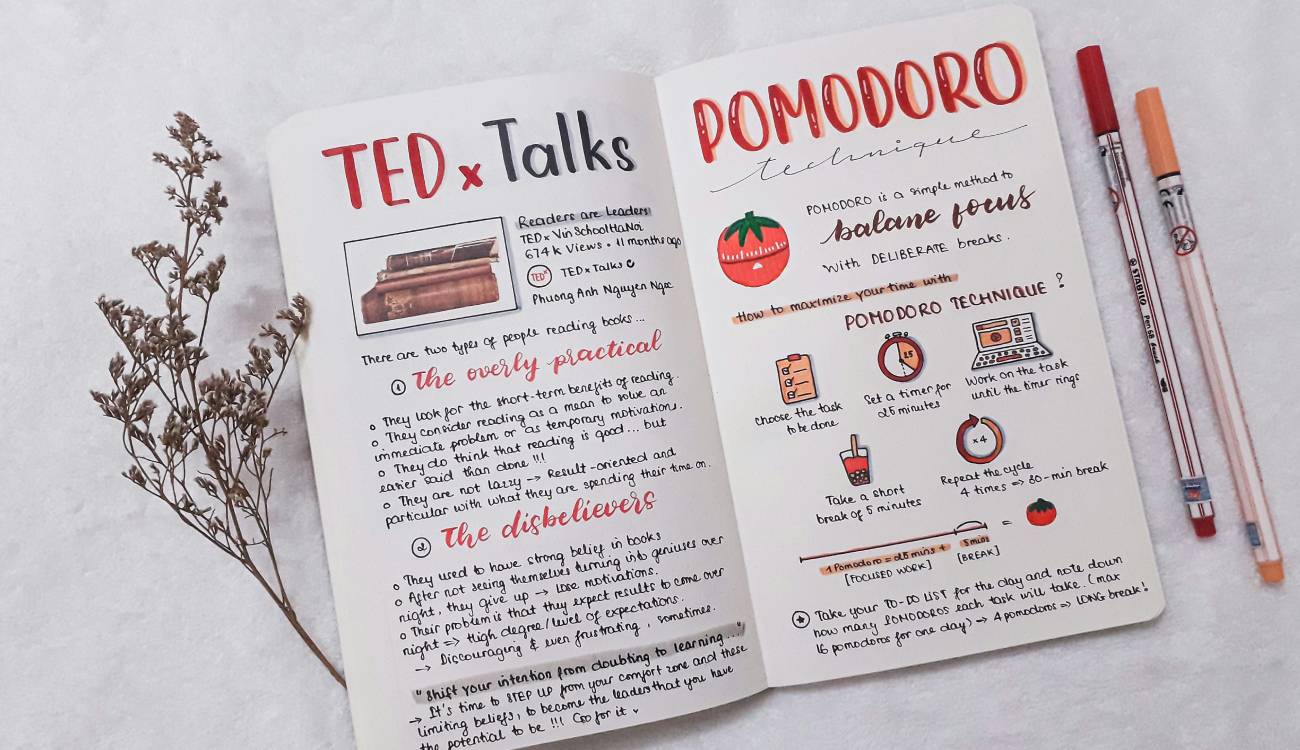 TED x Talks
Readers are Leaders
TEDx VinSchoolHaNoi
674k Views • 11 months ago
TEDx TEDxTalks
Phuong Anh Nguyen Ngoc
There are two types of people reading books...
① The overly practical
o They look for the short-term benefits of reading.
o They consider reading as a mean to solve an
immediate problem or as temporary motivations.
o They do think that reading is good ... but
easier said than done !!!
o They are not lazzy -> Result-oriented and
particular with what they are spending their time on.
② The disbelievers
o They used to have strong belief in books
o After not seeing themselves turning into geniuses over
night, they give up -> Lose motivations.
o Their problem is that they expect results to come over
night => High degree/level of expectations.
-> Discouraging & even frustrating, sometimes.
"Shift your intention from doubting to learning..."
-> It's time to STEP UP from your comfort zone and these
limiting beliefs, to become the leader that you have
the potential to be !!! Go for it
POMODORO
technique
POMODORO is a simple method to
balane focus
with DELIBERATE breaks.
How to maximize your time with
POMODORO TECHNIQUE ?
25
Choose the task
to be done
Set a timer for
25 minutes
Work on the task
until the timer rings
x4
Take a short
break of 5 minutes
Repeat the cycle
4 times => 30-min break
1 Pomodoro = 25 mins + 5 mins =
[FOCUSED WORK] [BREAK]
Take your TO-DO LIST for the day and note down
how many POMODOROS each task will take. (max
16 pomodoros for one day) -> 4 pomodoros => LONG break!
STABILO Pen 68